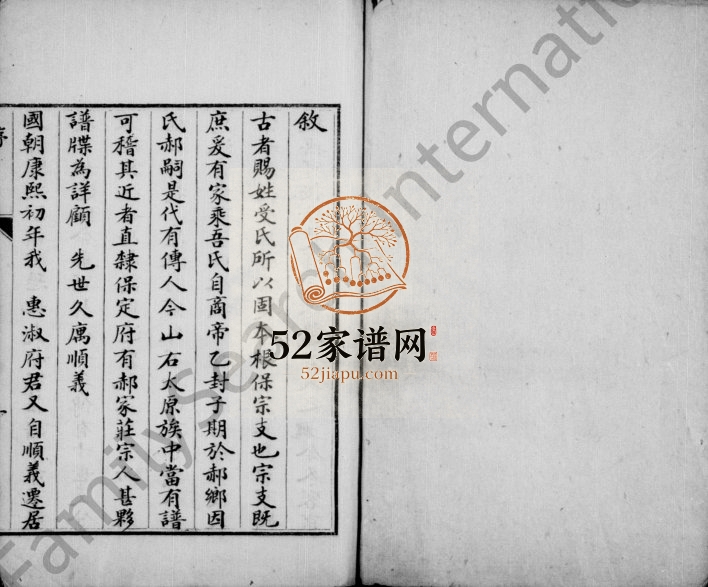 敘
古者賜姓受氏所以固本根保宗支也宗支既
庶爰有家乘吾氏自商帝乙封子期於郝鄉因
氏郝嗣是代有傳人今山右太原族中當有譜
可稽其近者直隸保定府有郝家莊宗人甚夥
譜牒為詳顧 先世久寓順義
國朝康熙初年我 惠淑府君又自順義遷居
序
一
52家谱网
52jiapu.com
FamilySearch Internati